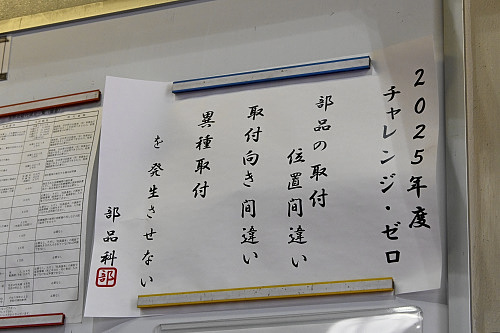 2025年度
チャレンジ・ゼロ
部品の取付
位置間違い
取付向き間違い
異種取付
を発生させない
部品科
部